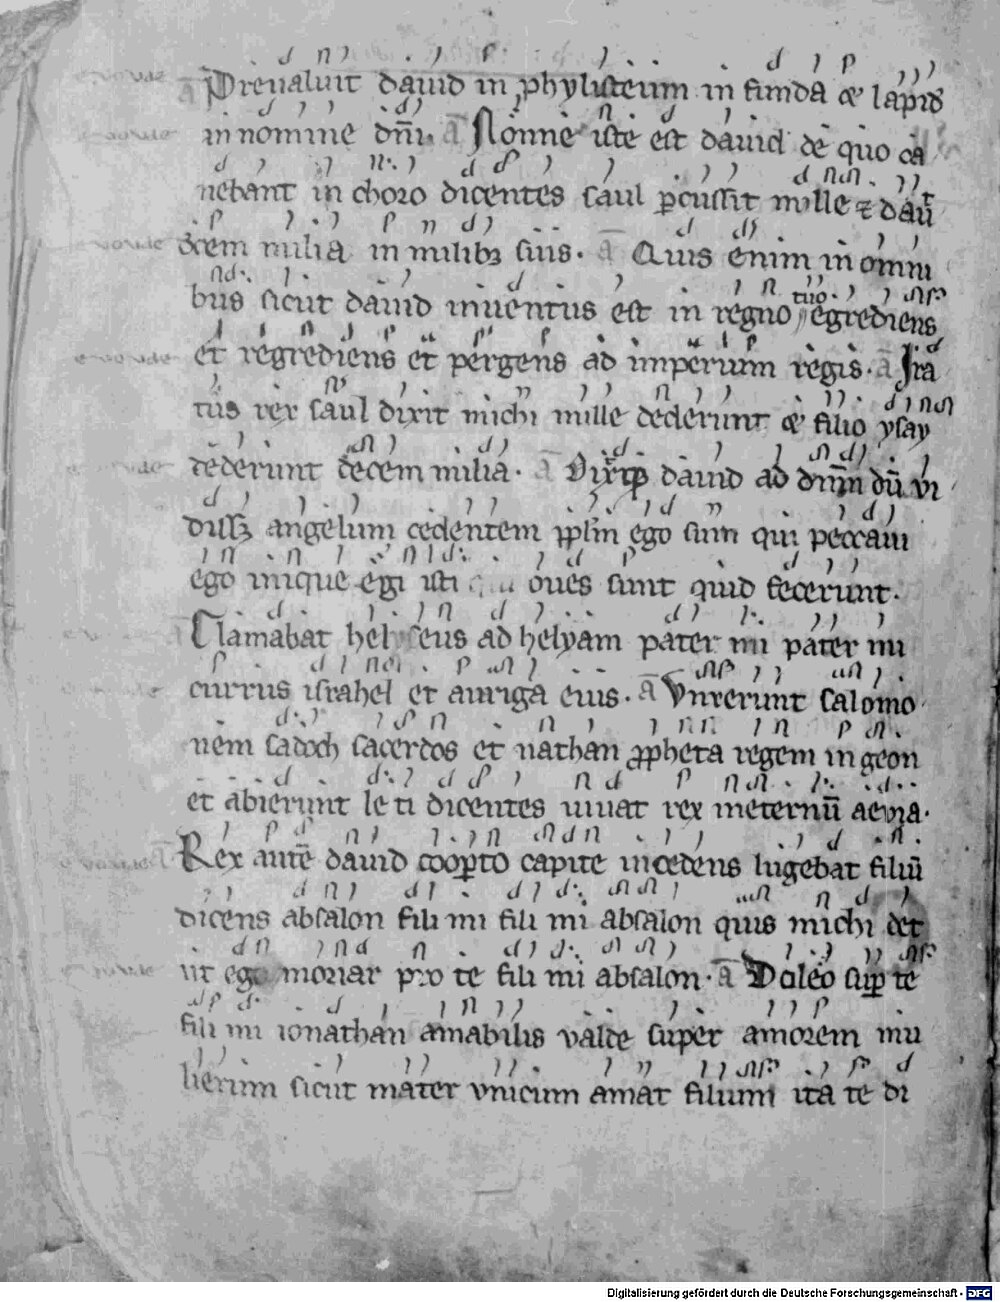 Preualuit dauid in phylisteum in funda & lapide
in nomine dn̄i. ā Nonne iste est dauid de quo ca
nebant in choro dicentes saul ꝑcussit mille ⁊ dauit
decem milia in milibꝫ suis. ā Quis enim in omni
bus sicut dauid inuentus est in regno tuo egrediens
et regrediens et pergens ad imperium regis. ā Ira
tus rex saul dixit michi mille dederunt & filio ysay
dederunt decem milia. ā Dixitqꝫ dauid ad dnm̄ dū vi
dissꝫ angelum cedentem pplm̄ ego sum qui peccaui
ego inique egi isti oues sunt quid fecerunt.
Clamabat helyseus ad helyam pater mi pater mi
currus israhel et auriga eius. ā Vnxerunt salomo
nem sadoch sacerdos et nathan ꝓpheta regem in geon
et abierunt leti dicentes uiuat rex in eternū aeuia.
ā Rex autē dauid cooꝑto capite incedens lugebat filiū
dicens absalon fili mi fili mi absalon quis michi det
ut ego moriar pro te fili mi absalon. ā Doleo suꝑ te
fili mi ionathan amabilis valde super amorem mu
lierum sicut mater vnicum amat filium ita te di
Digitalisierung gefördert durch die Deutsche Forschungsgemeinschaft - DFG